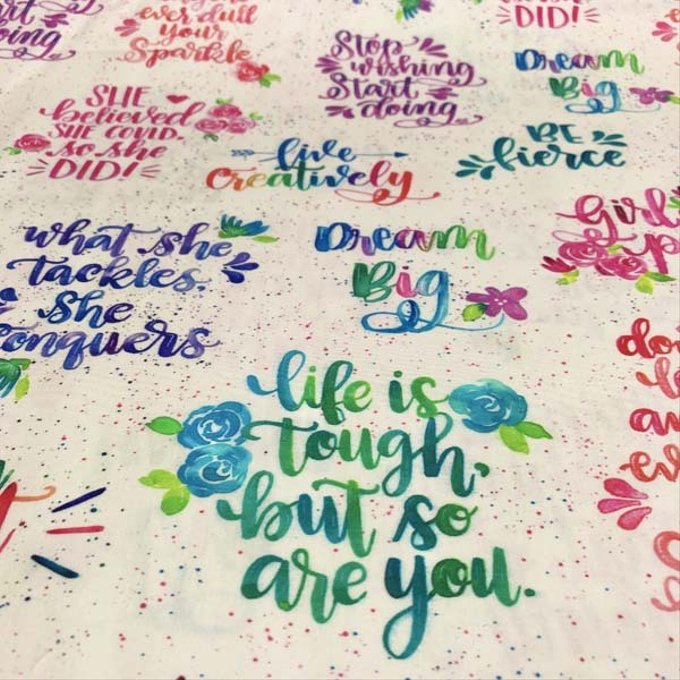 ever dull
your
Sparkle
Stop
wishing
Start
doing
DID!
Dream
Big
SHE
believed
SHE COULD.
so she
DID!
live
creatively
BE
fierce
what she
tackles,
She
conquers
Dream
Big
Girl
life is
tough,
but so
are you.